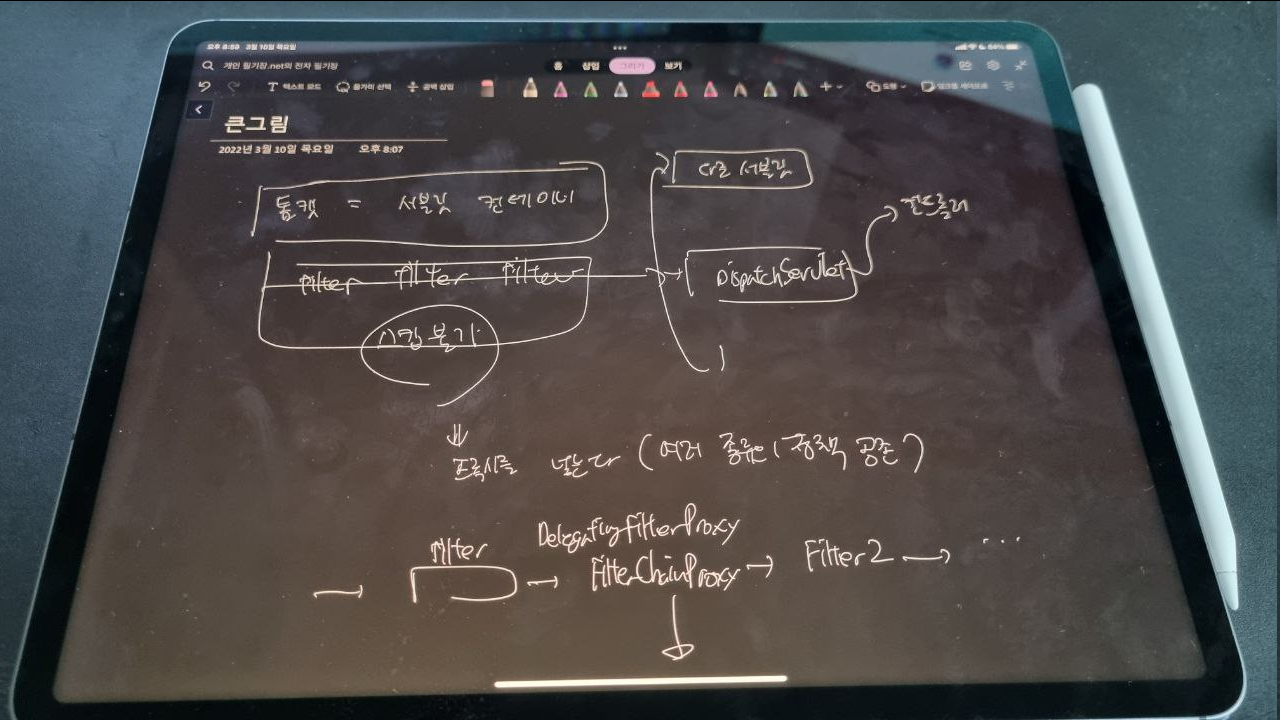 오후 8:59 3월 10일 목요일
64%
개인 필기장.net의 전자 필기장
홈 삽입 그리기 보기
텍스트 모드 올가미 선택 공백 삽입 도형
큰그림
2022년 3월 10일 목요일 오후 8:07
톰캣 = 서블릿 컨테이너
서블릿
컨트롤러
filter filter filter
DispatchServlet
시큐 본기
프록시를 넣는다 (여러 종류의 정책 공존)
filter
DelegatingfilterProxy
FilterChainProxy
Filter2
...